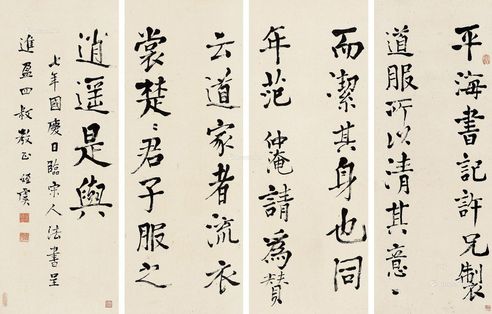 平海書記許兄製
道服所以清其意〻
而潔其身也同
年范仲淹請為贊
云道家者流衣
裳楚〻君子服之
逍遥是與
七年國慶日臨宋人法書呈
進盈四叔教正